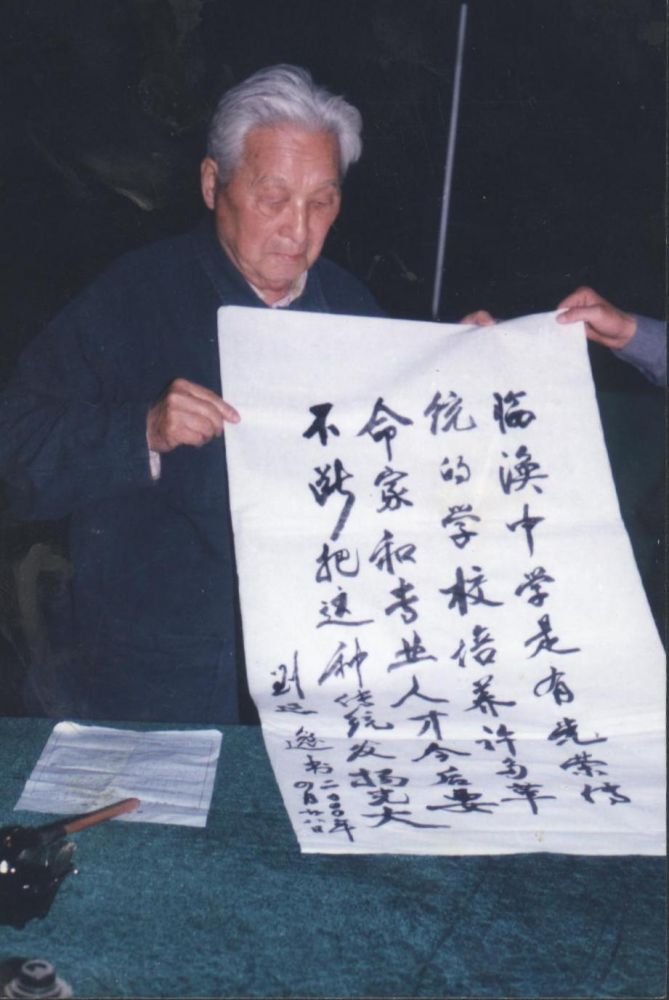 临涣中学是有光荣传
统的学校培养许多革
命家和专业人才今后要
不断把这种传统发扬光大
刘逸书二〇〇〇年
四月廿八日